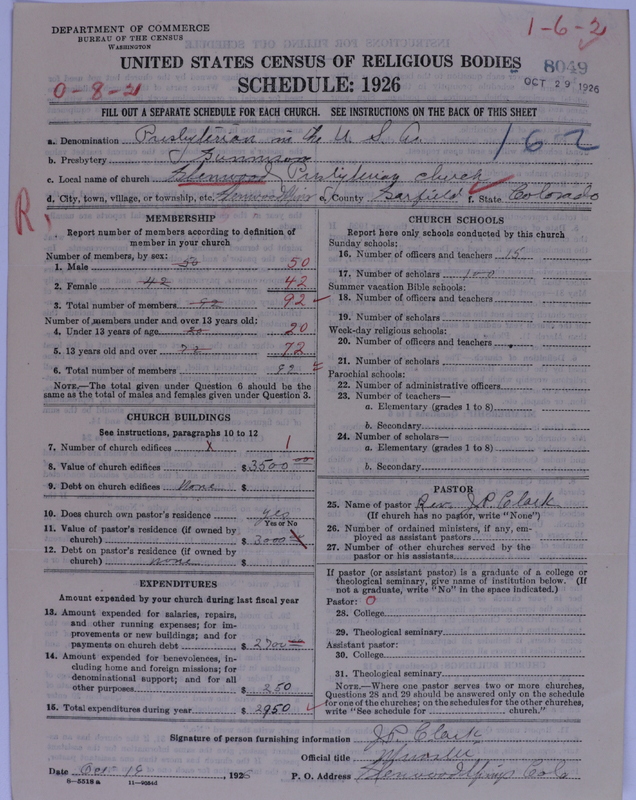 DEPARTMENT OF COMMERCE
BUREAU OF THE CENSUS
WASHINGTON
1-6-2
UNITED STATES CENSUS OF RELIGIOUS BODIES
SCHEDULE: 1926
8049
OCT 29 1926
0-8-2
FILL OUT A SEPARATE SCHEDULE FOR EACH CHURCH. SEE INSTRUCTIONS ON THE BACK OF THIS SHEET
a. Denomination Presbyterian in the U S A
162
b. Presbytery Gunnison
c. Local name of church Glenwood Presbyterian church
d. City, town, village, or township, etc. e. County Garfield f. State Colorado
R,
MEMBERSHIP
Report number of members according to definition of
member in your church
Number of members, by sex:
1. Male 50 50
2. Female 42 42
3. Total number of members 92 92
Number of members under and over 13 years old:
4. Under 13 years of age 20 20
5. 13 years old and over 72 72
6. Total number of members 92
NOTE.—The total given under Question 6 should be the
same as the total of males and females given under Question 3.
CHURCH BUILDINGS
See instructions, paragraphs 10 to 12
7. Number of church edifices 1
8. Value of church edifices $3500
9. Debt on church edifices None $
10. Does church own pastor's residence yes
Yes or No
11. Value of pastor's residence (if owned by
church) $3000
12. Debt on pastor's residence (if owned by
church) none $
EXPENDITURES
Amount expended by your church during last fiscal year
13. Amount expended for salaries, repairs,
and other running expenses; for im-
provements or new buildings; and for
payments on church debt $2700
14. Amount expended for benevolences, in-
cluding home and foreign missions; for
denominational support; and for all
other purposes $250
15. Total expenditures during year $2950
CHURCH SCHOOLS
Report here only schools conducted by this church
Sunday schools:
16. Number of officers and teachers 15
17. Number of scholars 100
Summer vacation Bible schools:
18. Number of officers and teachers
19. Number of scholars
Week-day religious schools:
20. Number of officers and teachers
21. Number of scholars
Parochial schools:
22. Number of administrative officers
23. Number of teachers—
a. Elementary (grades 1 to 8)
b. Secondary
24. Number of scholars—
a. Elementary (grades 1 to 8)
b. Secondary
PASTOR
25. Name of pastor Rev. J.P. Clark
(If church has no pastor, write "None")
26. Number of ordained ministers, if any, em-
ployed as assistant pastors
27. Number of other churches served by the
pastor or his assistants
If pastor (or assistant pastor) is a graduate of a college or
theological seminary, give name of institution below. (If
not a graduate, write "No" in the space indicated.)
Pastor: 0
28. College
29. Theological seminary
Assistant pastor:
30. College
31. Theological seminary
NOTE.—Where one pastor serves two or more churches,
Questions 28 and 29 should be answered only on the schedule
for one of the churches; on the schedules for the other churches,
write "See schedule for church."
Signature of person furnishing information J.P. Clark
Official title Minister
Date Oct 19 1926 P. O. Address Glenwood Springs Colo
8-5518 a